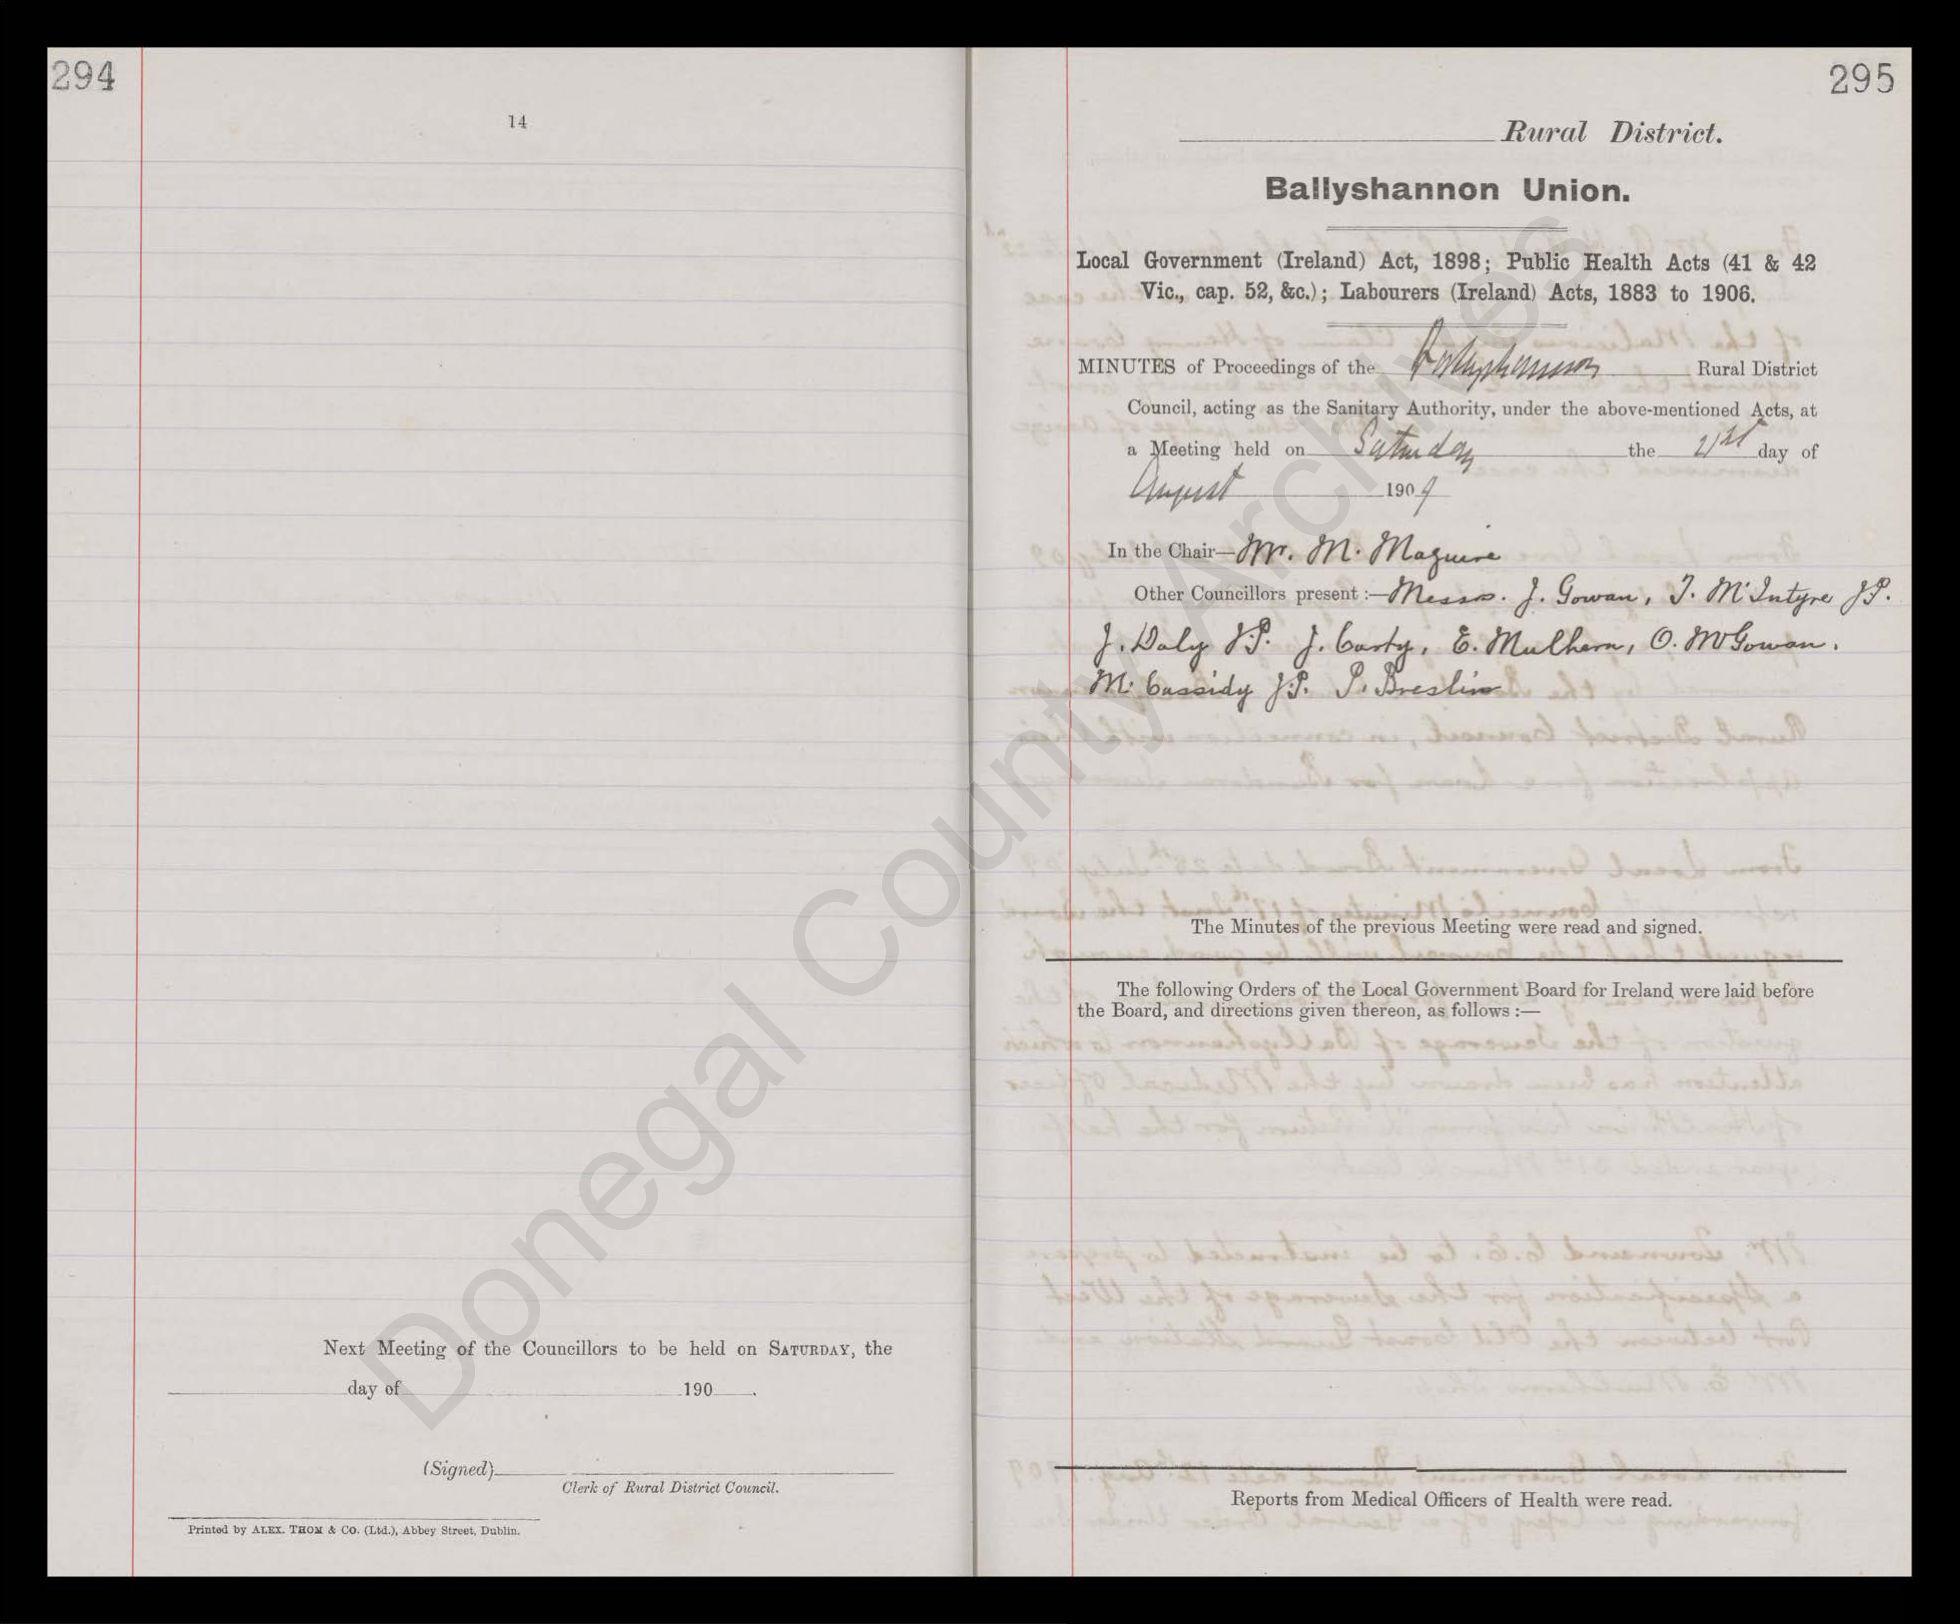 294
14
Next Meeting of the Councillors to be held on SATURDAY, the
day of 190 .
(Signed)
Clerk of Rural District Council.
Printed by ALEX. THOM & Co. (Ltd.), Abbey Street, Dublin.
295
Rural District.
Ballyshannon Union.
Local Government (Ireland) Act, 1898; Public Health Acts (41 & 42
Vic., cap. 52, &c.); Labourers (Ireland) Acts, 1883 to 1906.
MINUTES of Proceedings of the Ballyshannon Rural District
Council, acting as the Sanitary Authority, under the above-mentioned Acts, at
a Meeting held on Saturday the 21st day of
August 1909
In the Chair—Mr. M. Maguire
Other Councillors present :—Messrs. J. Gowan, T. McIntyre J.P.
J. Daly J.P. J. Carty, E. Mulhern, O. McGowan.
M. Cassidy J.P. P. Breslin
The Minutes of the previous Meeting were read and signed.
The following Orders of the Local Government Board for Ireland were laid before
the Board, and directions given thereon, as follows :—
Reports from Medical Officers of Health were read.
Donegal County Archives